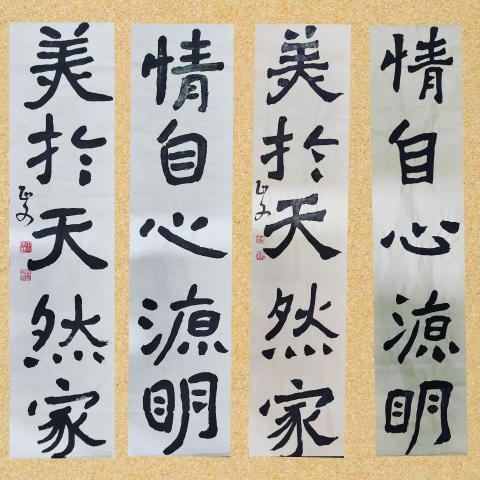 情自心源明
美於天然家
正文
情自心源明
美於天然家
正文